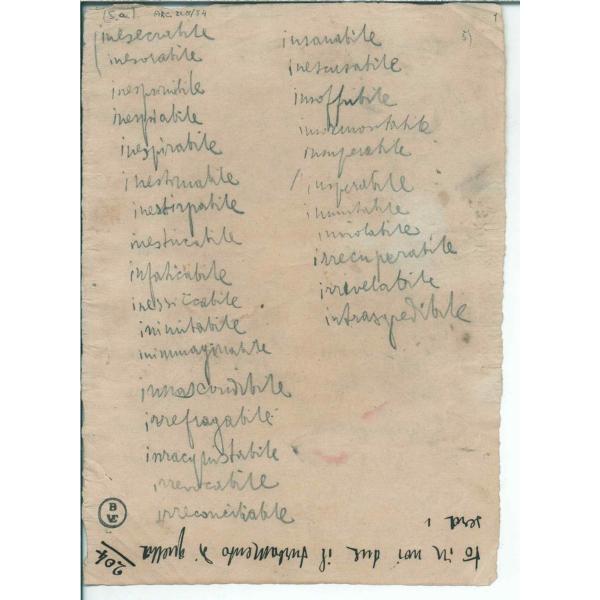 (5.a)
ARC. 204/54
inesecrabile
inesorabile
inesprimibile
inespiabile
inespirabile
inestimabile
inestirpabile
inestricabile
infaticabile
inessiccabile
inimitabile
inimmaginabile
innascondibile
irrefragabile
inracquistabile
irrevocabile
irreconciliabile
insanabile
5)
inescusabile
insoffribile
insormontabile
insuperabile
insperabile
inmutabile
inviolabile
irrecuperabile
irrevelabile
intrasgredibile
to in noi due il turbamento di quella
sera
204
B